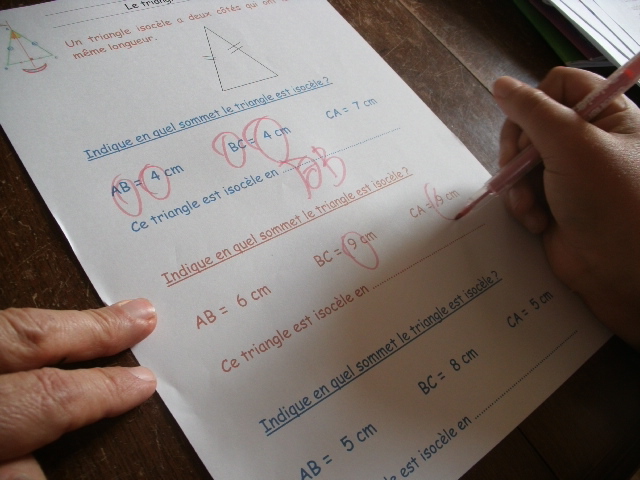 Le triang
Un triangle isocèle a deux côtés qui ont
même longueur.
Indique en quel sommet le triangle est isocèle ?
AB = 4 cm BC = 4 cm CA = 7 cm
Ce triangle est isocèle en B
Indique en quel sommet le triangle est isocèle ?
AB = 6 cm BC = 9 cm CA = 9 cm
Ce triangle est isocèle en
Indique en quel sommet le triangle est isocèle ?
AB = 5 cm BC = 8 cm CA = 5 cm
le est isocèle en